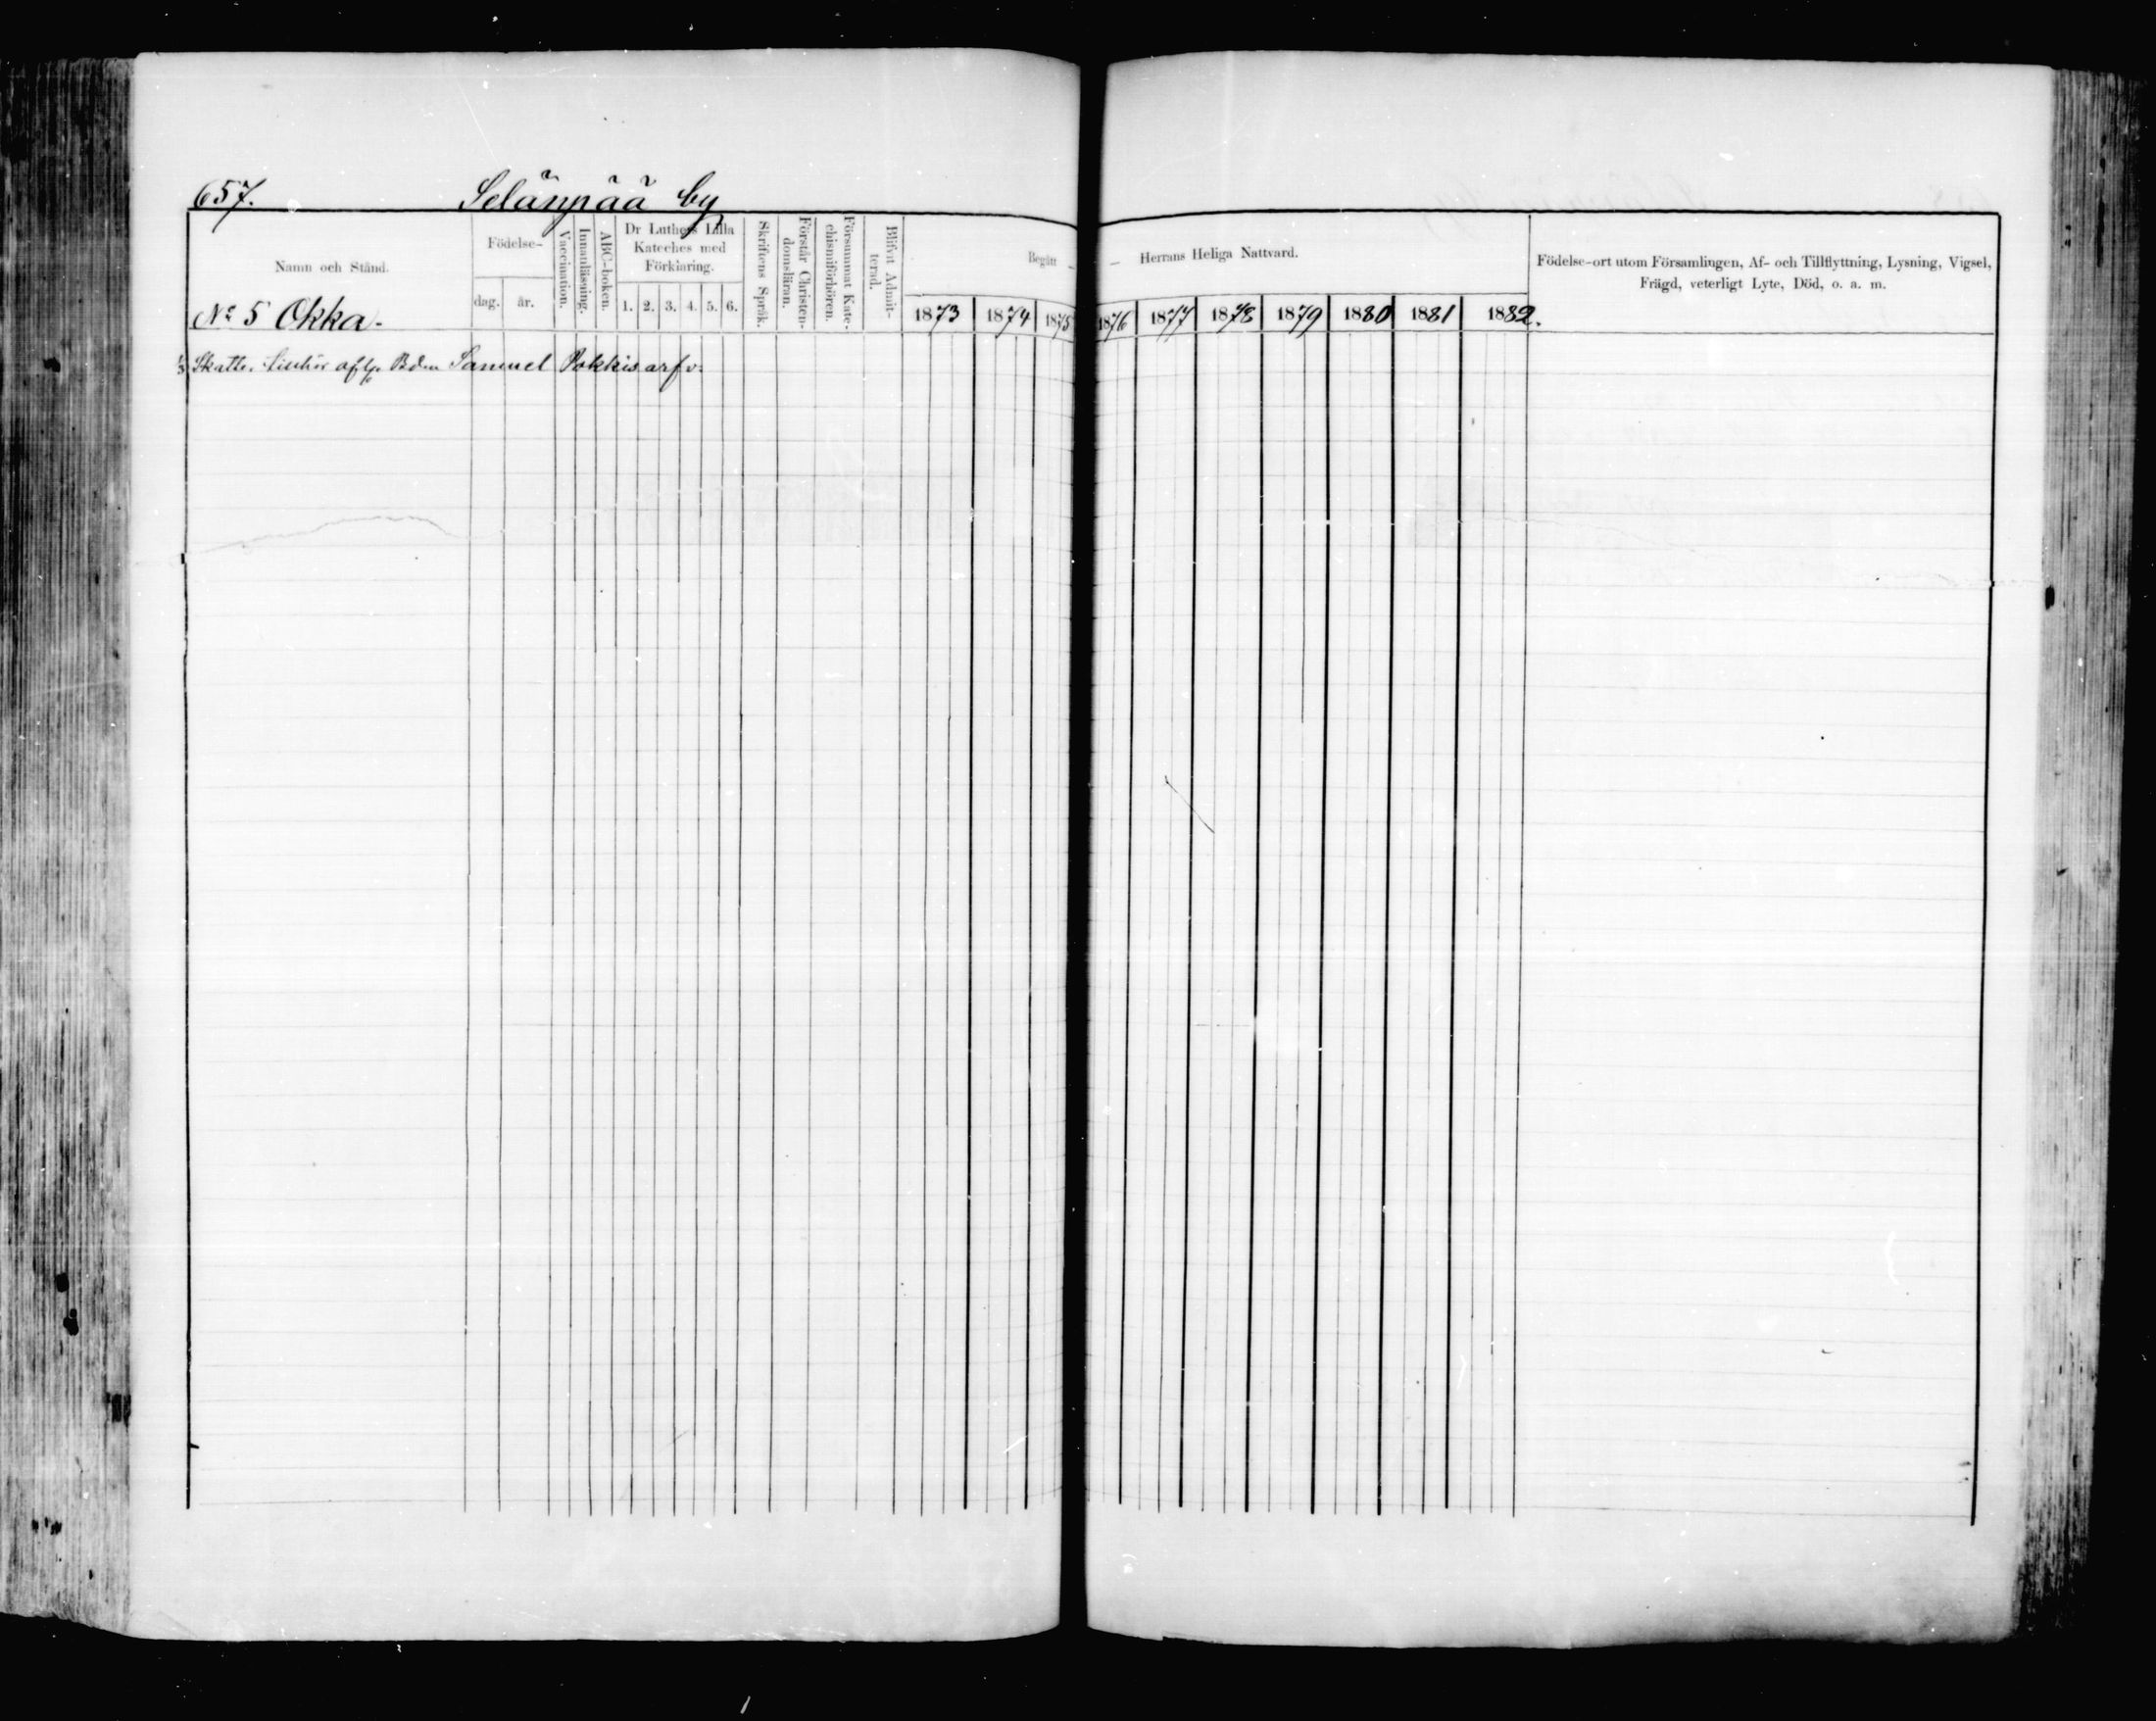 657. Selänpää by
Namn och Stånd.
Födelse-
dag. år.
Vaccination.
Innanläsning.
ABC-boken.
Dr Luthers Lilla
Kateches med
Förklaring.
1. 2. 3. 4. 5. 6.
Skriftens Språk.
Förstår Christen-
domsläran.
Försummat Kate-
chismiförhören.
Blifvit Admit-
terad.
Begått — — Herrans Heliga Nattvard.
1873 1874 1875 1876 1877 1878 1879 1880 1881 1882.
Födelse-ort utom Församlingen, Af- och Tillflyttning, Lysning, Vigsel,
Frägd, veterligt Lyte, Död, o. a. m.
No 5 Okka.
1/3 Skatte. Bdn Samuel Pokkis arfv.